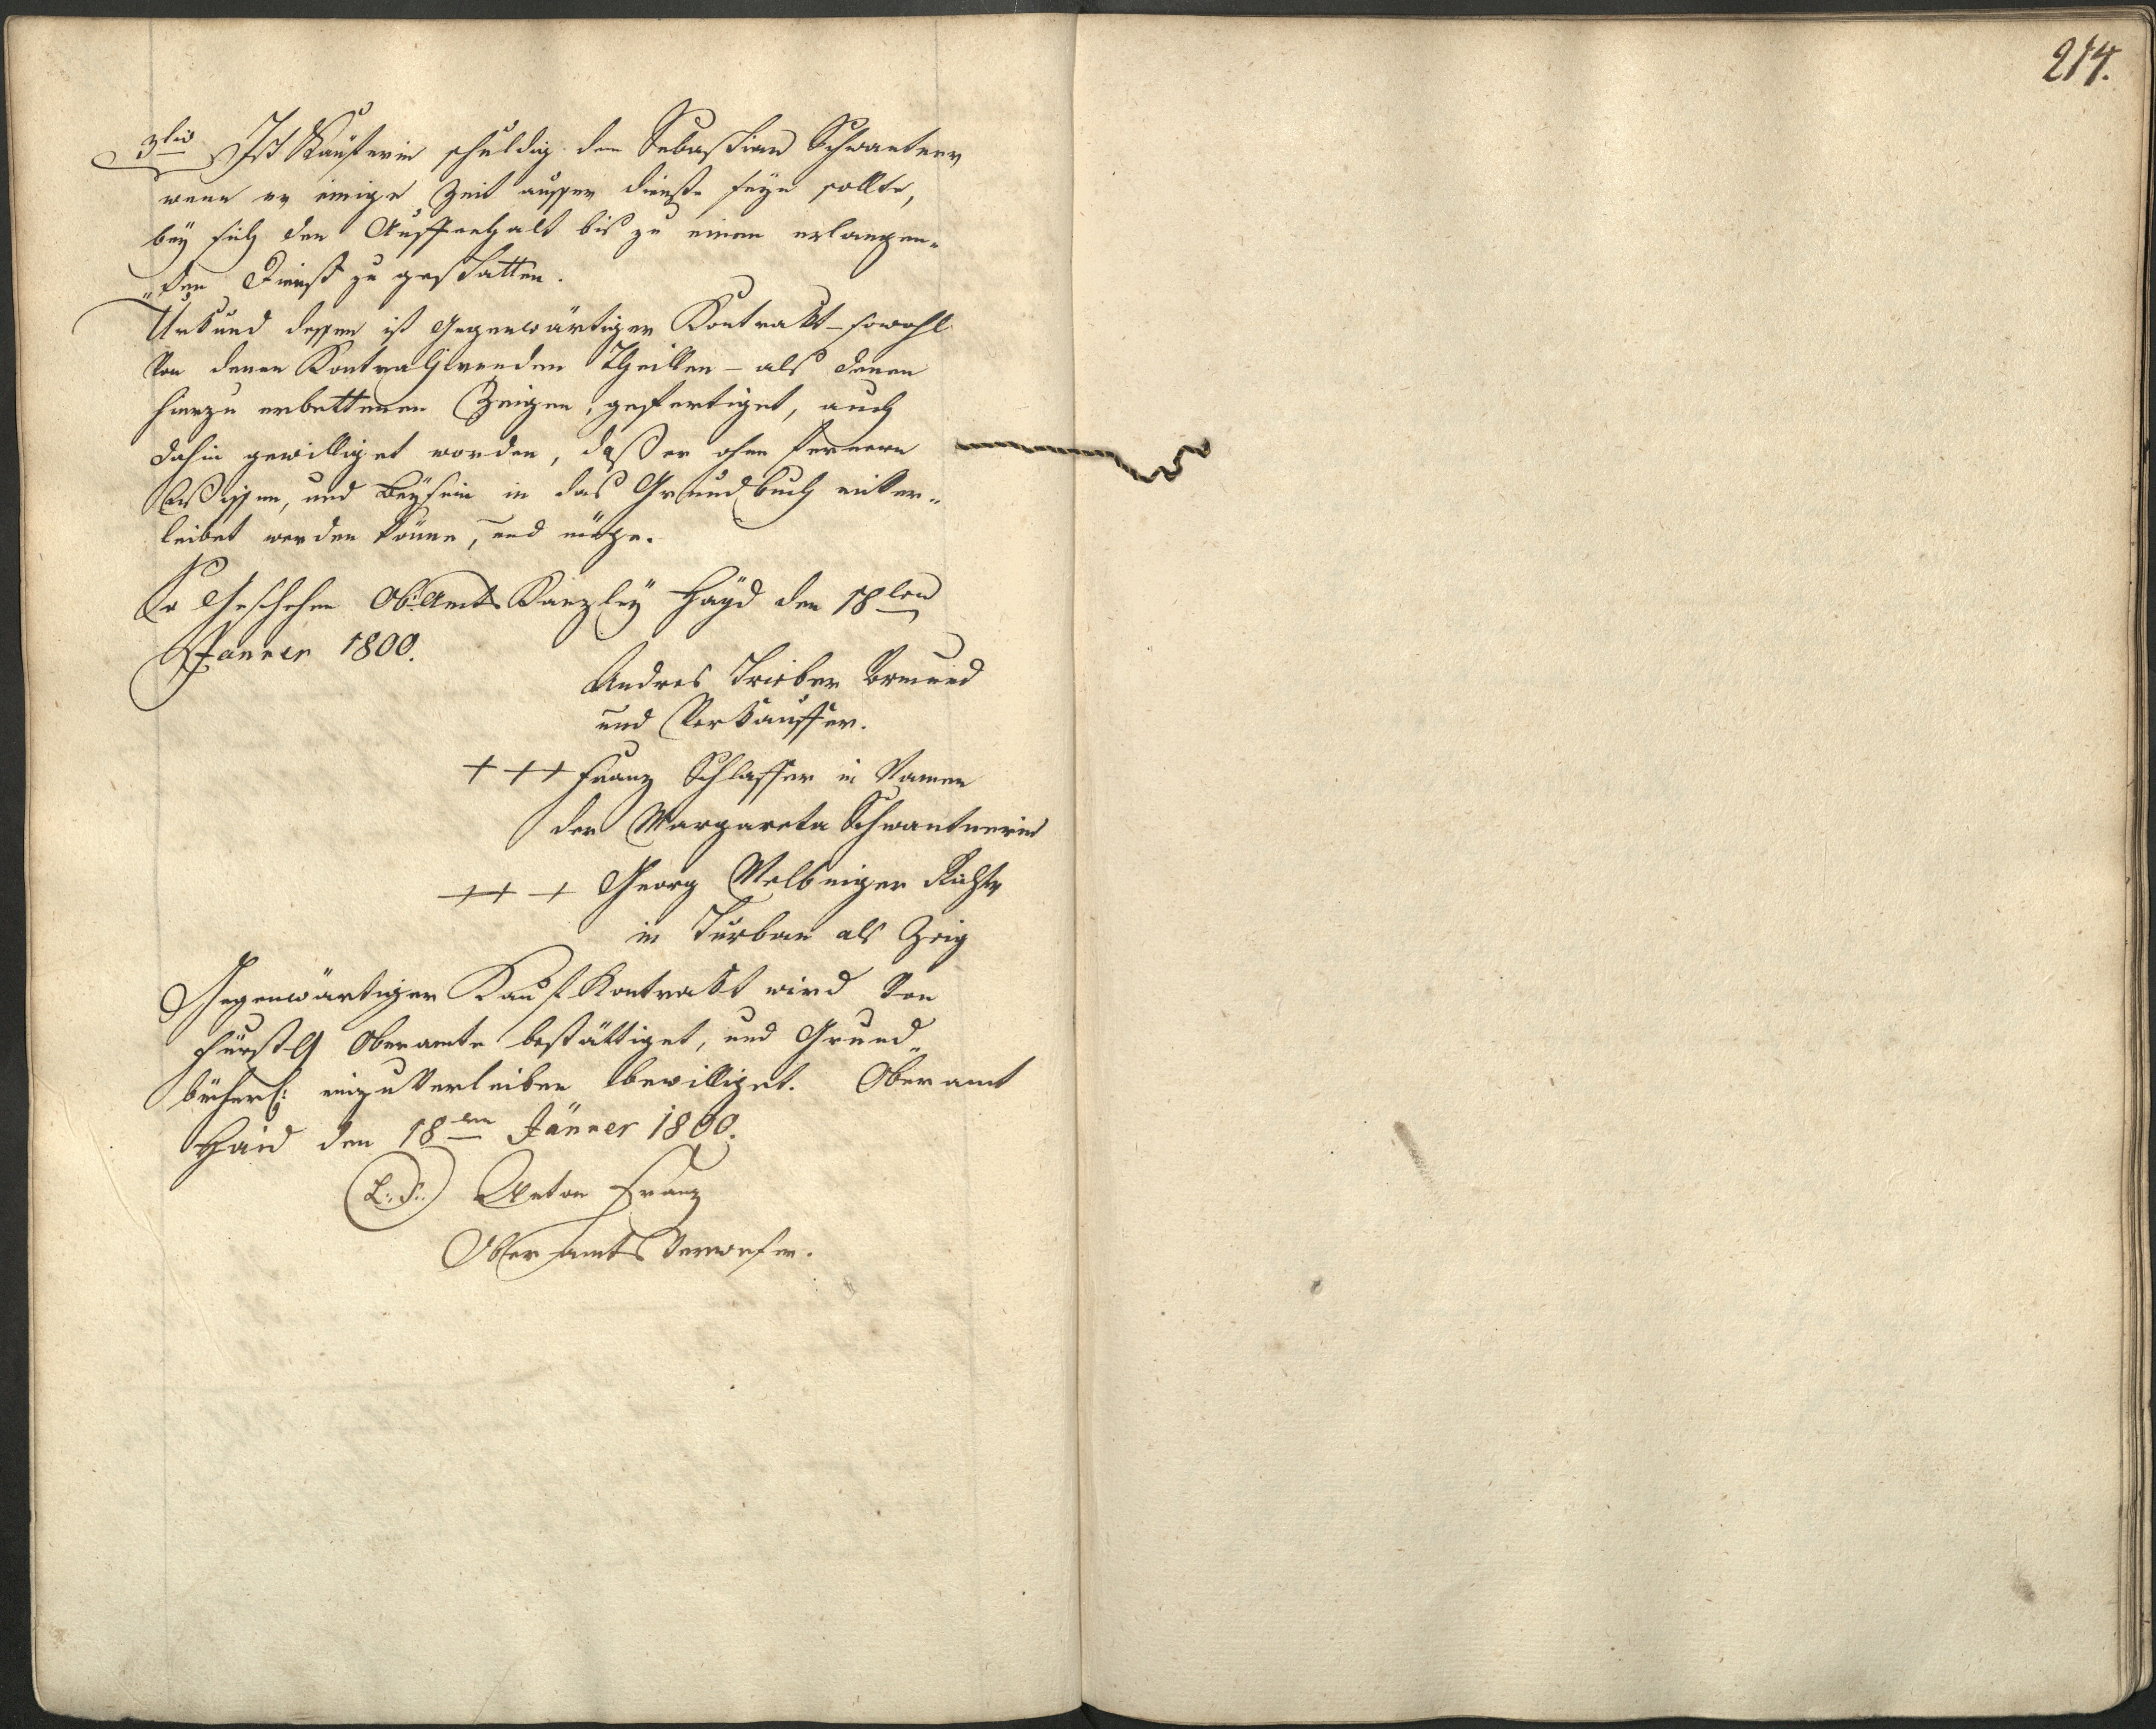 214.
3tio Ist Käuferin schuldig dem Sebastian Schwantner
wenn er einige Zeit ausser Dienste seyn sollte,
bey sich den Auffenthalt bis zu einen erlangen„
„den Dienst zu gestatten.
Urkund dessen ist Gegenwärtiger Kontrakt - sowohl
von denen Kontrahirenden Theillen - als denen
hierzu erbettenen Zeigen, gefertiget, auch
dahin gewilliget worden, daß er ohne fernern
Wissen, und Beysein in das Grundbuch einver„
leibet werden könne, und möge.
So Geschehen Ob: Amts Kanzley Hayd den 18ten
Jänner 1800.
Andres Trieber Vormund
und Verkauffer.
+ + + Franz Schlosser in Namen
der Margareta Schwantnerin
+ + + Georg Richter
in Turban als Zeig
Gegenwärtiger Kauf Kontrakt wird von
fürstl Oberamte bestättiget, und Grund„
bücherl: einzuverleiben bewilliget. Oberamt
Haid den 18ten Jänner 1800.
(L: S:) Anton Franz
Oberamts Verweser.